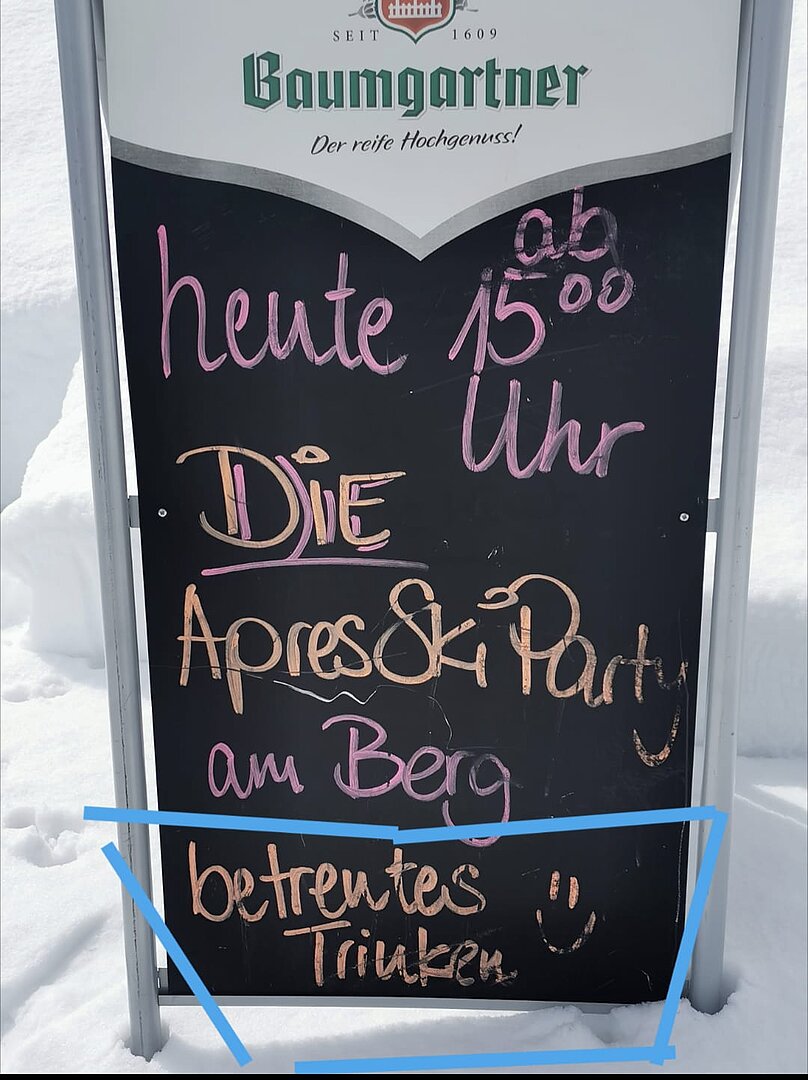 SEIT 1609
Baumgartner
Der reife Hochgenuss!
heute ab
15⁰⁰
Uhr
DIE
Apres Ski Party
am Berg
betreutes
Trinken